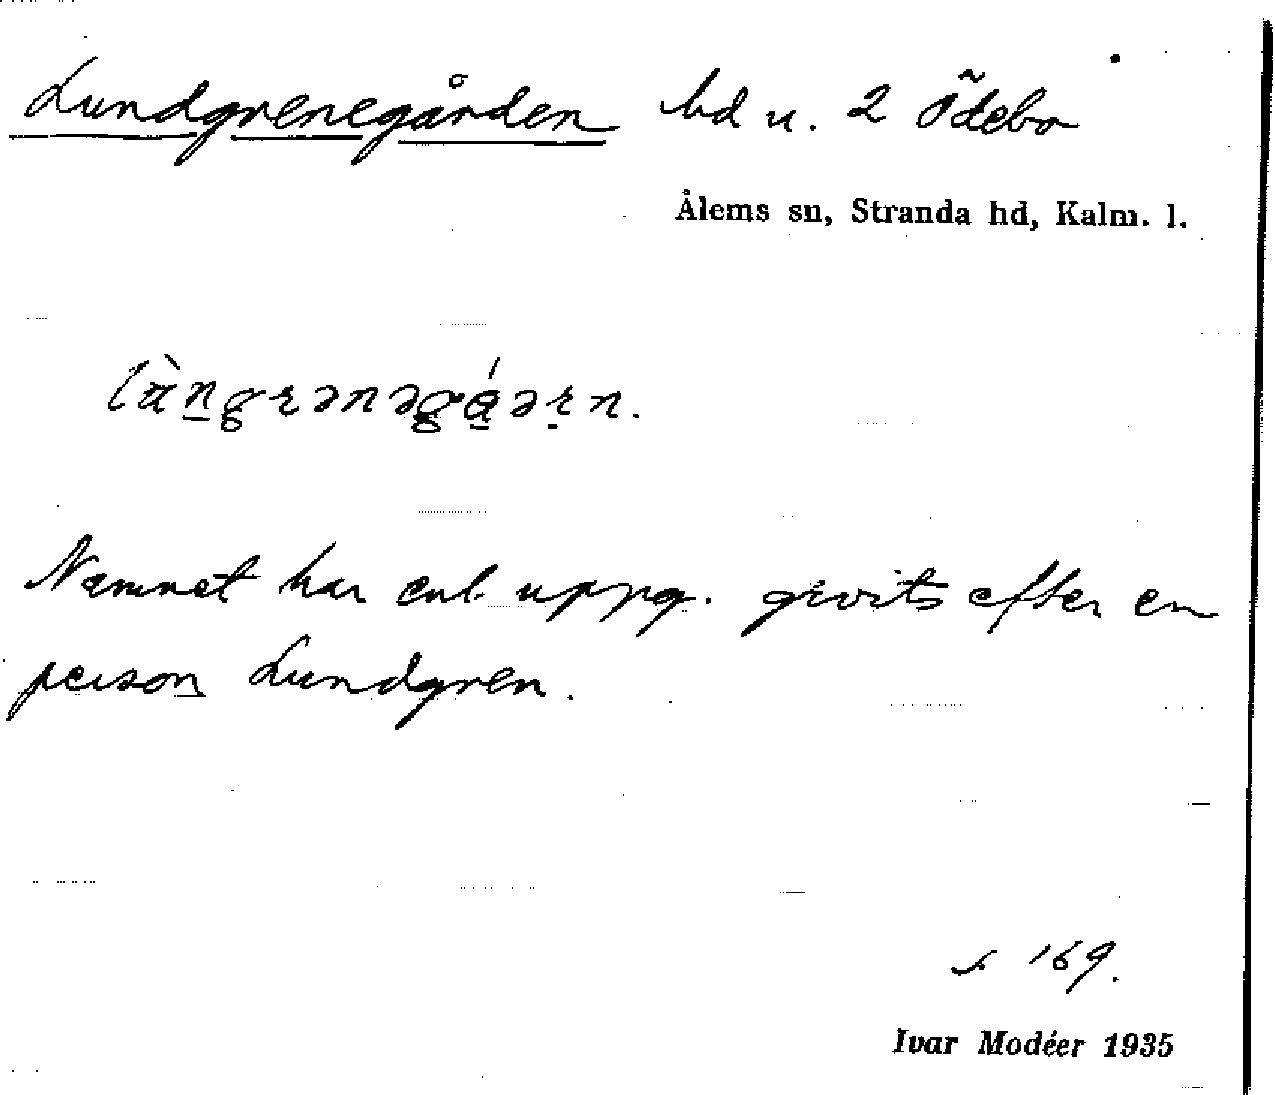 Lundgrenegården bd u. 2 Ödebo
Ålems sn, Stranda hd, Kalm. l.
Namnet har enl. uppg. givits efter en
person Lundgren.
s 169.
Ivar Modéer 1935